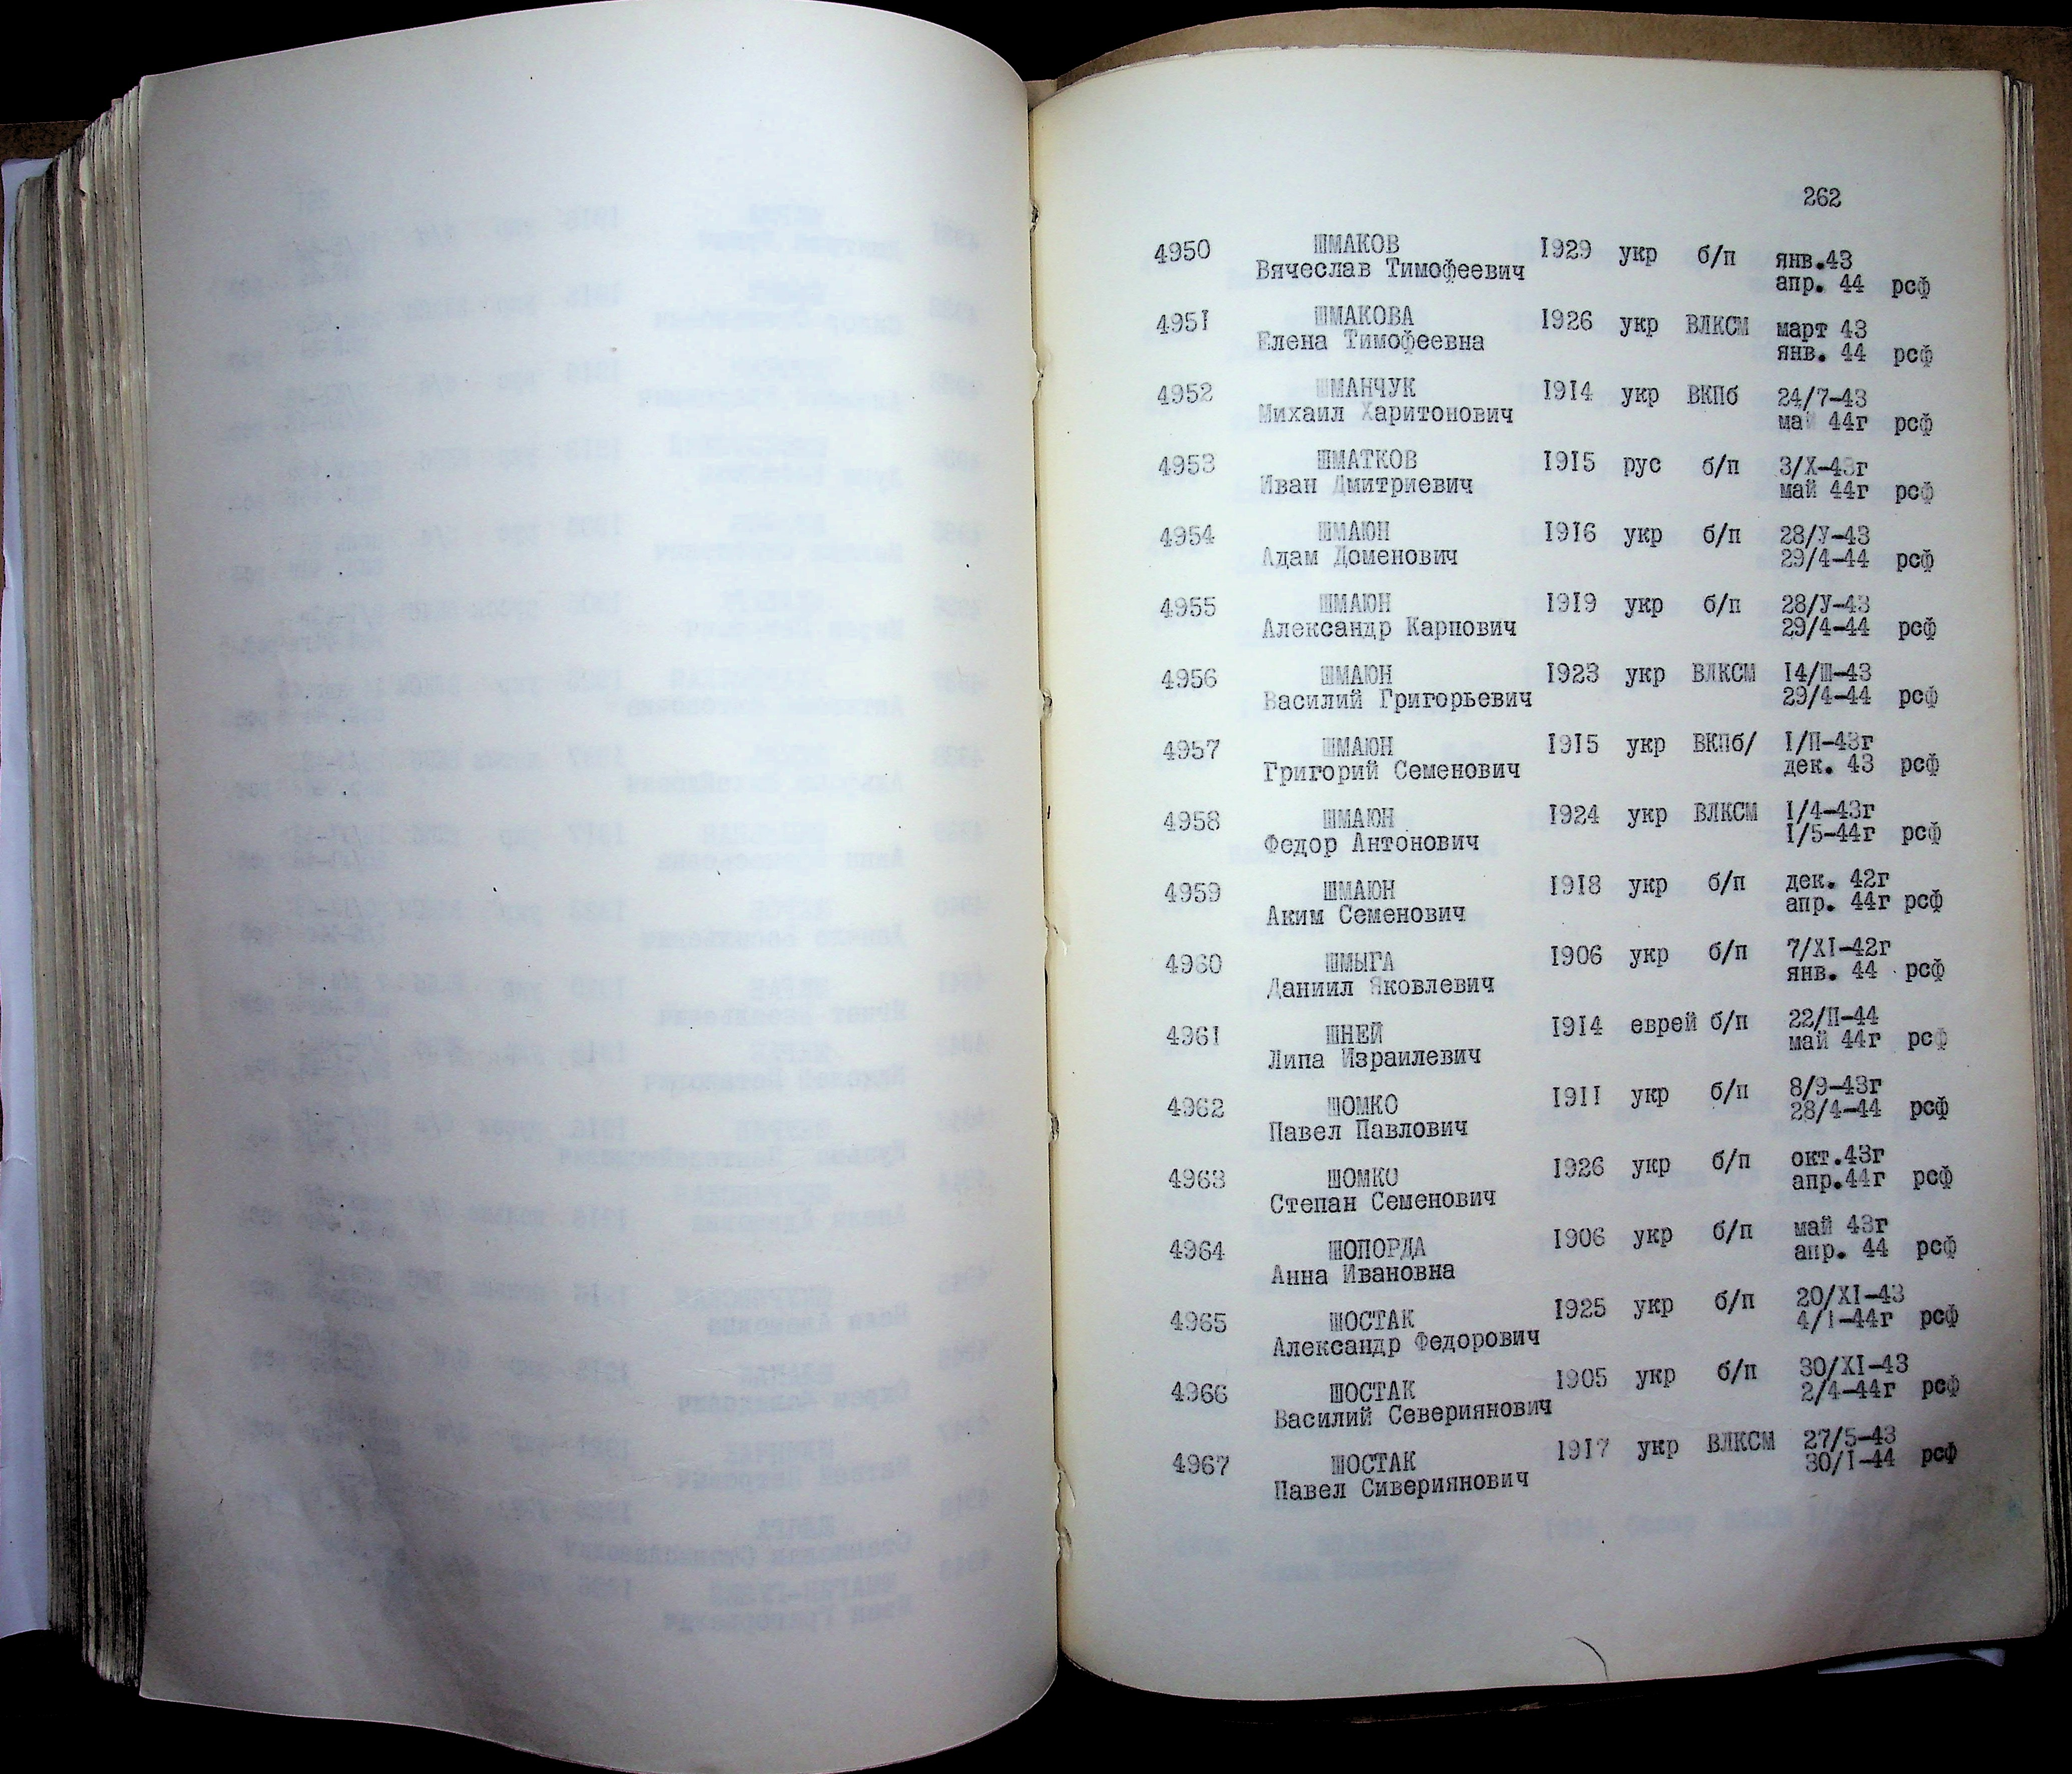 262
4950 ШМАКОВ 1929 укр б/п янв.43
Вячеслав Тимофеевич апр. 44 рсф
4951 ШМАКОВА 1926 укр ВЛКСМ март 43
Елена Тимофеевна янв. 44 рсф
4952 ШМАНЧУК 1914 укр ВКПб 24/7-43
Михаил Харитонович май 44г рсф
4953 ШМАТКОВ 1915 рус б/п 3/X-43г
Иван Дмитриевич май 44г рсф
4954 ШМАЮН 1916 укр б/п 28/У-43
Адам Доменович 29/4-44 рсф
4955 ШМАЮН 1919 укр б/п 28/У-43
Александр Карпович 29/4-44 рсф
4956 ШМАЮН 1923 укр ВЛКСМ 14/Ш-43
Василий Григорьевич 29/4-44 рсф
4957 ШМАЮН 1915 укр ВКПб/ I/П-43г
Григорий Семенович дек. 43 рсф
4958 ШМАЮН 1924 укр ВЛКСМ I/4-43г
Федор Антонович I/5-44г рсф
4959 ШМАЮН 1918 укр б/п дек. 42г
Аким Семенович апр. 44г рсф
4960 ШМЫГА 1906 укр б/п 7/XI-42г
Даниил Яковлевич янв. 44 рсф
4961 ШНЕЙ 1914 еврей б/п 22/П-44
Липа Израилевич май 44г рсф
4962 ШОМКО 1911 укр б/п 8/9-43г
Павел Павлович 28/4-44 рсф
4963 ШОМКО 1926 укр б/п окт.43г
Степан Семенович апр.44г рсф
4964 ШОПОРДА 1906 укр б/п май 43г
Анна Ивановна апр. 44 рсф
4965 ШОСТАК 1925 укр б/п 20/XI-43
Александр Федорович 4/I-44г рсф
4966 ШОСТАК 1905 укр б/п 30/XI-43
Василий Севериянович 2/4-44г рсф
4967 ШОСТАК 1917 укр ВЛКСМ 27/5-43
Павел Сивериянович 30/I-44 рсф